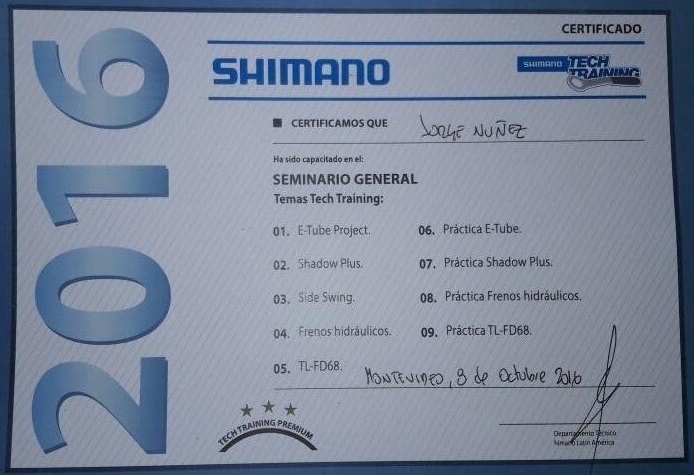 CERTIFICADO
SHIMANO
SHIMANO TECH TRAINING
2016
CERTIFICAMOS QUE JORGE NUÑEZ
Ha sido capacitado en el:
SEMINARIO GENERAL
Temas Tech Training:
01. E-Tube Project.
02. Shadow Plus.
03. Side Swing.
04. Frenos hidráulicos.
05. TL-FD68.
06. Práctica E-Tube.
07. Práctica Shadow Plus.
08. Práctica Frenos hidráulicos.
09. Práctica TL-FD68.
MONTEVIDEO, 9 de Octubre 2016
TECH TRAINING PREMIUM
Departamento Técnico
himano Latin América